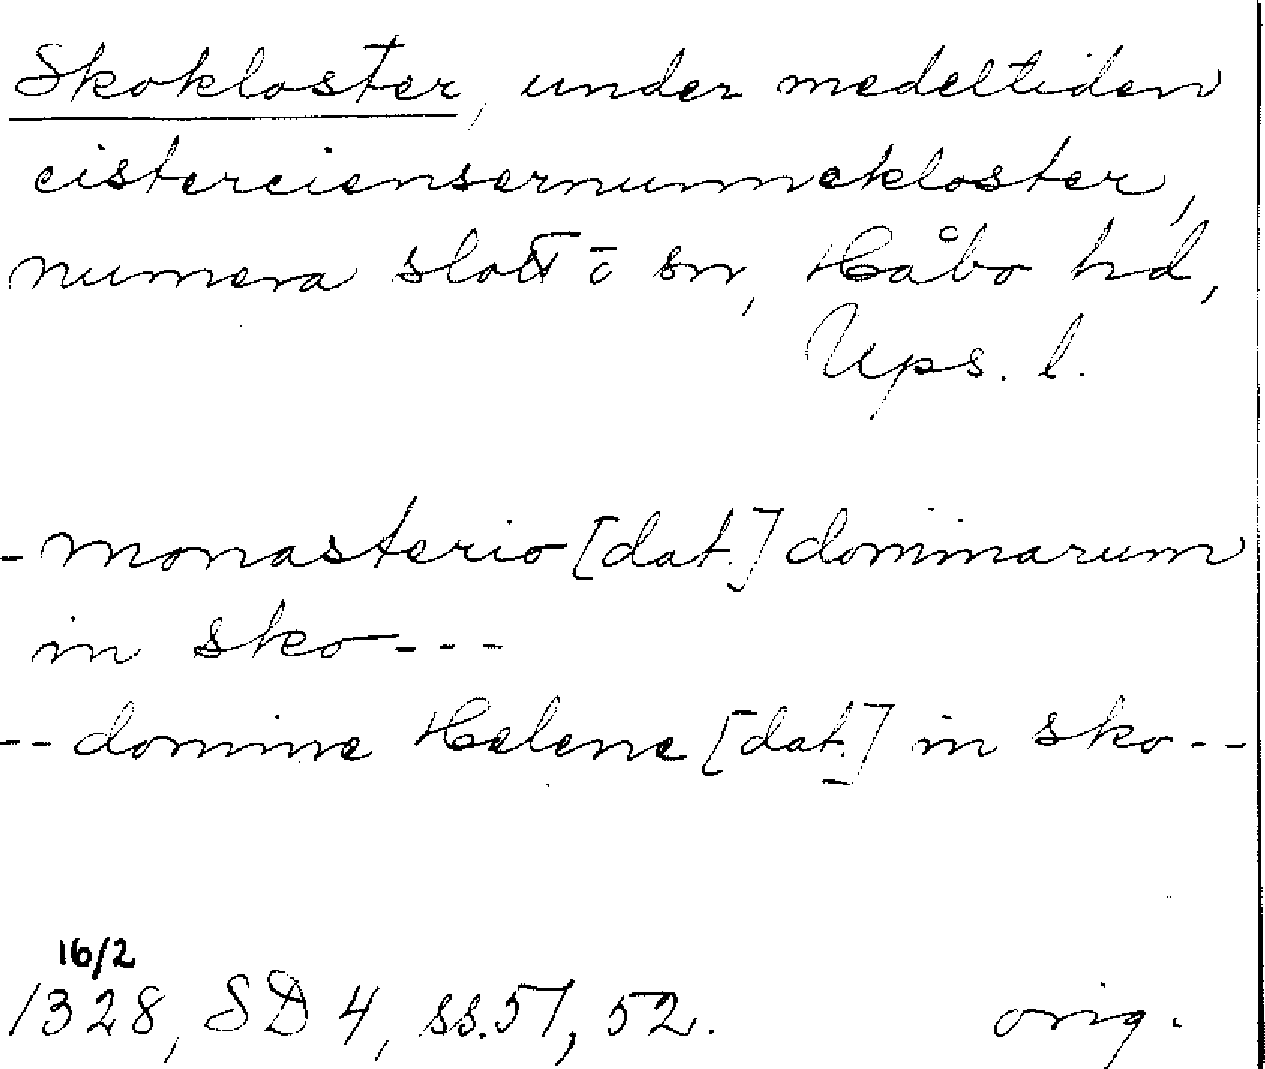 Skokloster, under medeltiden
cisterciensernunnekloster,
numera slott o sn, Håbo hd,
Ups. l.
- monasterio [dat.] dominarum
in sko - - -
- - domine Helene [dat.] in sko - -
16/2
1328, SD 4, ss. 51, 52. orig.